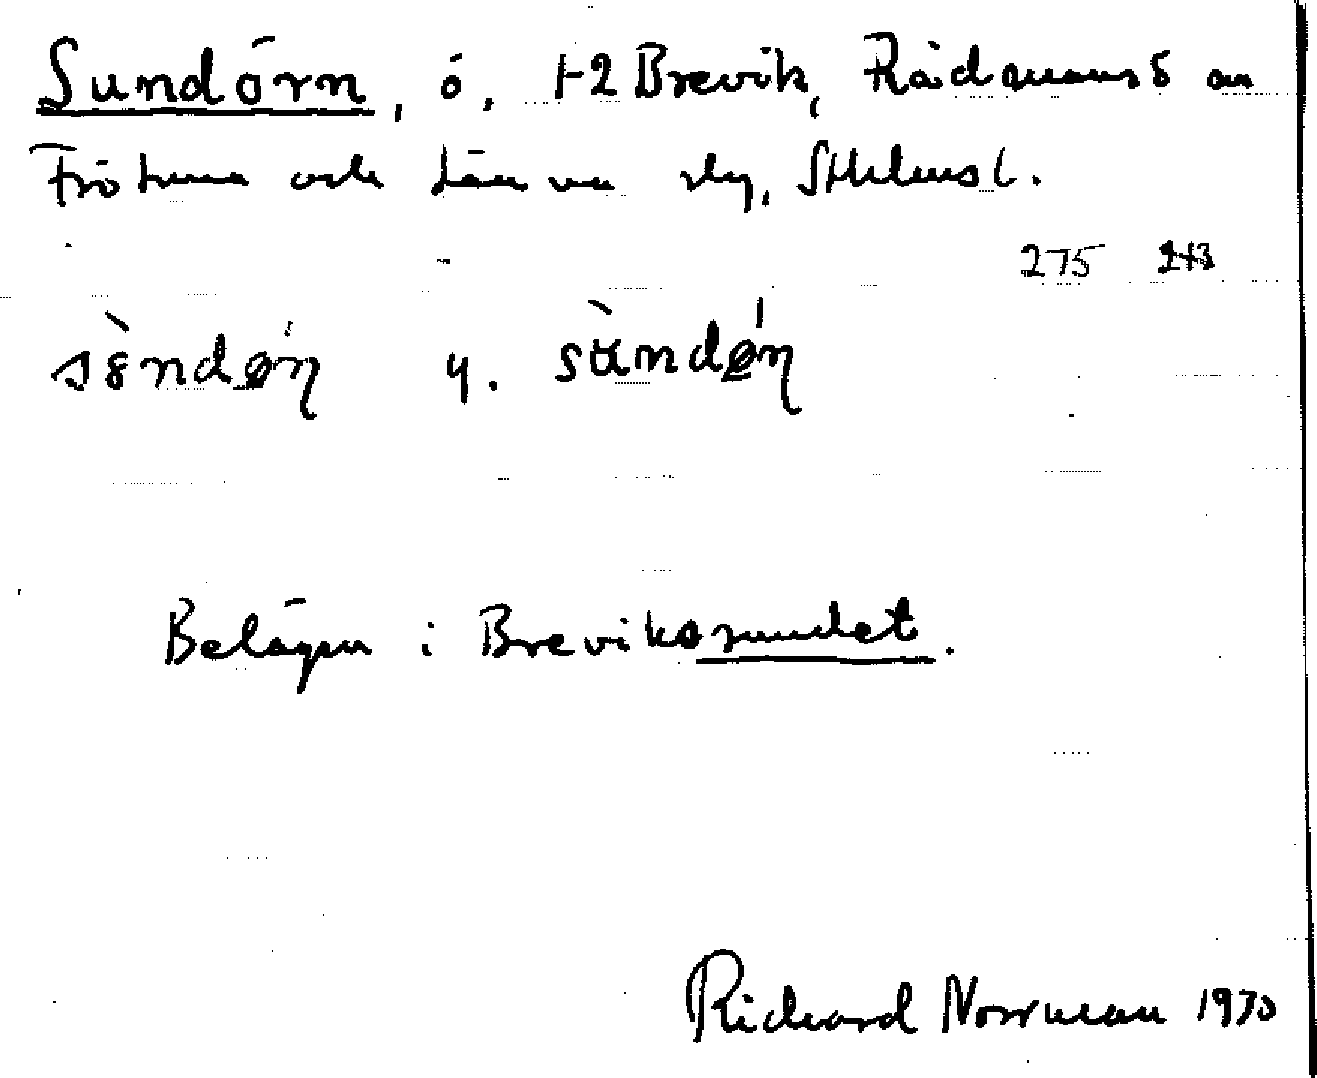 Sundörn, ö, 1-2 Brevik, Rådmansö sn
Frötuna och Länna slg, Sthlms l.
275 243
sòndöɳ y. sùndöɳ
Belägen i Brevikssundet.
Richard Norrman 1970